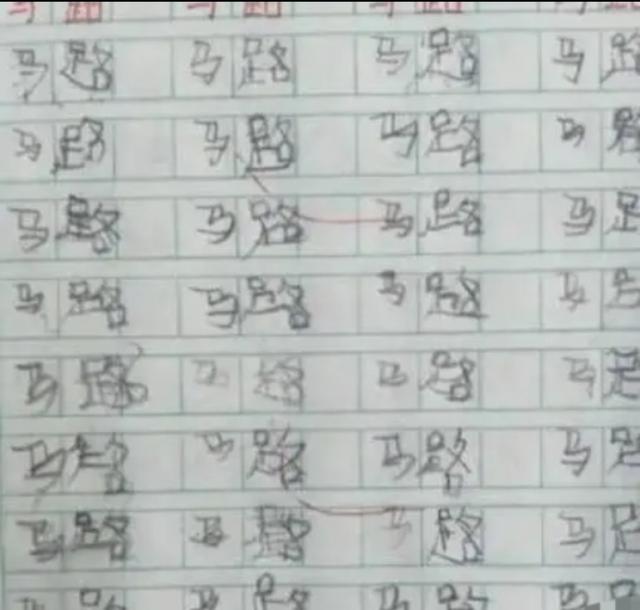 马路 马路 马路 马路
马路 马路 马路 马路
马路 马路 马路 马路
马路 马路 马路 马路
马路 马路 马路 马路
马路 马路 马路 马路
马路 马路 马路 马路
马路 马路 马路 马路
马路 马路 马路 马路